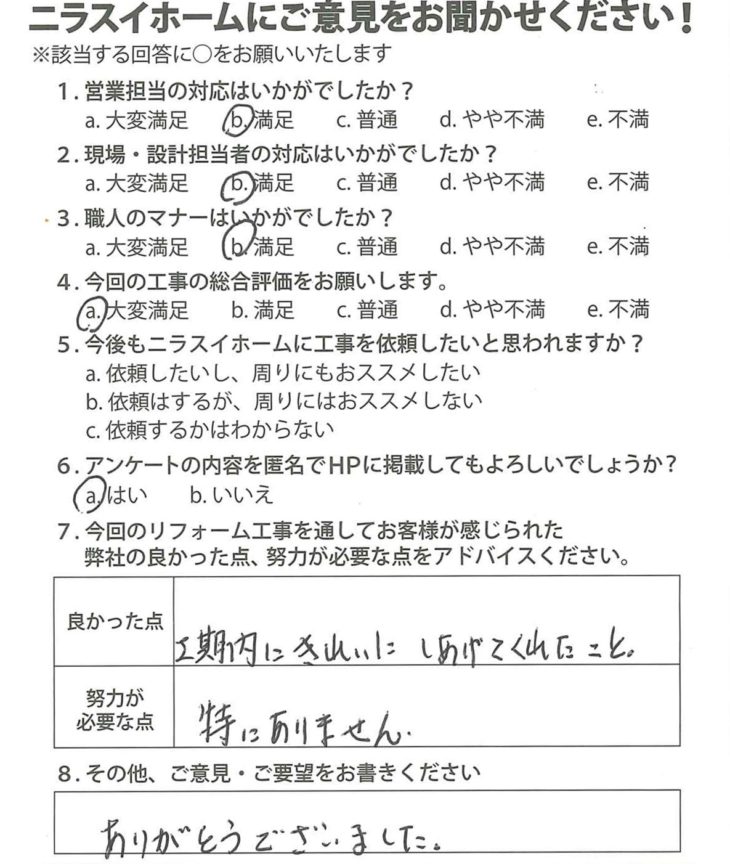 ニラスイホームにご意見をお聞かせください！
※該当する回答に○をお願いいたします
1. 営業担当の対応はいかがでしたか？
a. 大変満足 b. 満足 c. 普通 d. やや不満 e. 不満
2. 現場・設計担当者の対応はいかがでしたか？
a. 大変満足 b. 満足 c. 普通 d. やや不満 e. 不満
3. 職人のマナーはいかがでしたか？
a. 大変満足 b. 満足 c. 普通 d. やや不満 e. 不満
4. 今回の工事の総合評価をお願いします。
a. 大変満足 b. 満足 c. 普通 d. やや不満 e. 不満
5. 今後もニラスイホームに工事を依頼したいと思われますか？
a. 依頼したいし、周りにもおススメしたい
b. 依頼はするが、周りにはおススメしない
c. 依頼するかはわからない
6. アンケートの内容を匿名でHPに掲載してもよろしいでしょうか？
a. はい b. いいえ
7. 今回のリフォーム工事を通してお客様が感じられた
弊社の良かった点、努力が必要な点をアドバイスください。
良かった点
工期内にきれいに しあげてくれたこと。
努力が
必要な点
特にありません.
8. その他、ご意見・ご要望をお書きください
ありがとうございました。